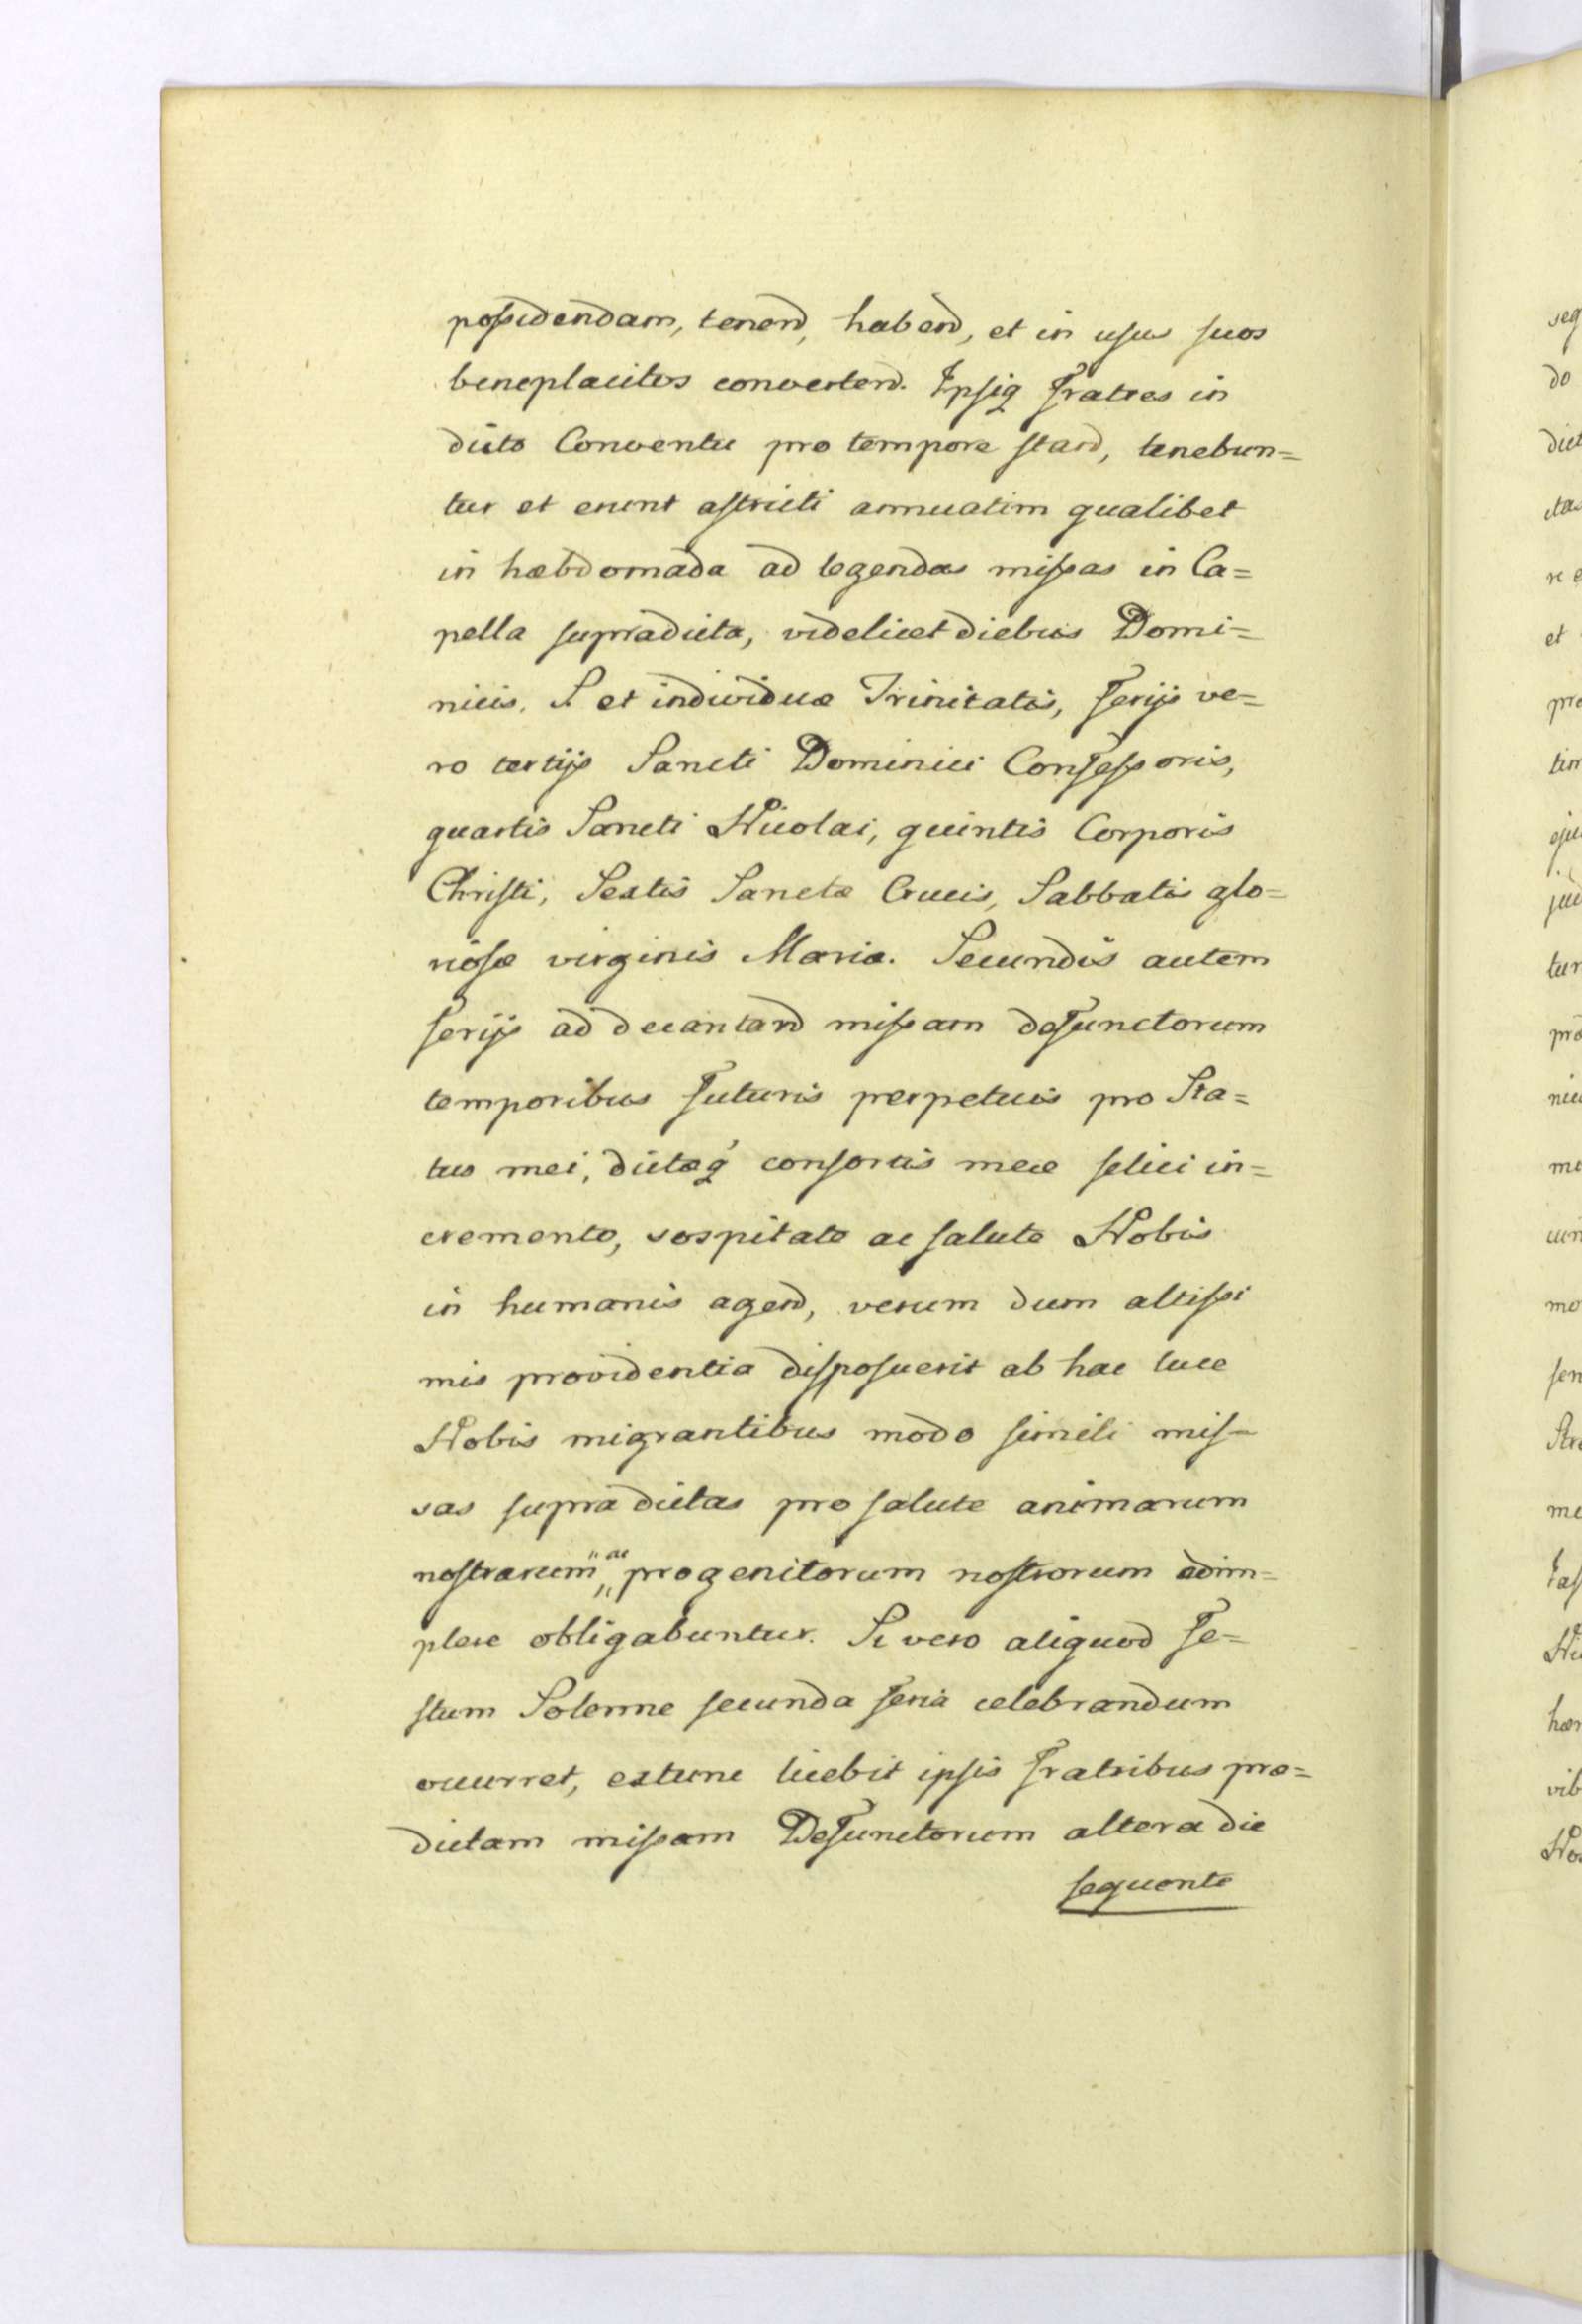 possidendam, tenend, habend, et in usus suos
beneplacitos convertend. Ipsiq Fratres in
dicto Conventu pro tempore stand, tenebun=
tur et erunt astricti annuatim qualibet
in hæbdomada ad legendas missas in Ca=
pella supradicta, videlicet diebus Domi=
nicis. S. et individuæ Trinitatis, Ferijs ve=
ro tertijs Sancti Dominici Confessoris,
quartis Sancti Nicolai, quintis Corporis
Christi, Sextis Sanctæ Crucis, Sabbatis glo=
riosæ virginis Mariæ. Secundis autem
ferijs ad decantand missam defunctorum
temporibus futuris perpetuis pro Sta=
tus mei, dictæq consortis meæ felici in=
cremento, sospitate ac salute Nobis
in humanis agend, verum dum altissi
mis providentia disposuerit ab hac luce
Nobis migrantibus modo simili mis=
sas supradictas pro salute animarum
nostrarum "ac" progenitorum nostrorum adim=
plere obligabuntur. Si vero aliquod Fe=
stum Solenne secunda feria celebrandum
occurret, extunc licebit ipsis Fratribus præ=
dictam missam Defunctorum altera die
sequente
seq
do
dict
re e
et
pro
tim
tur
pro
me
mo
sen
me
vib